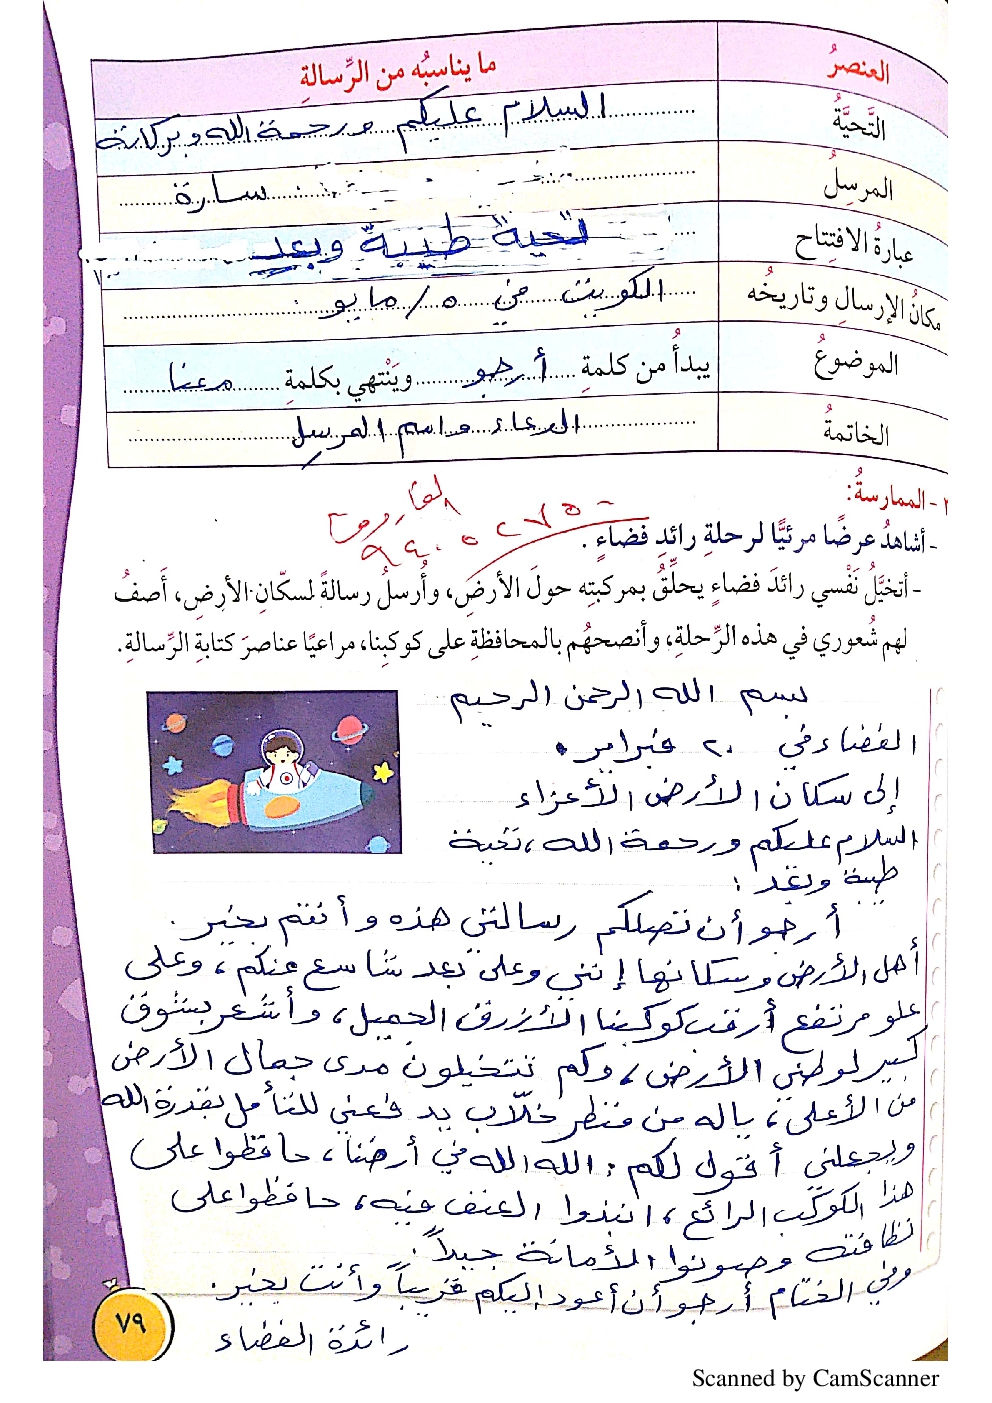 العنصرُ ما يناسبُه من الرِّسالةِ
التَّحيَّةُ السلام عليكم ورحمة الله وبركاتة
المرسِلُ سارة
عبارةُ الافتِتاح تحية طيبة وبعد
مكانُ الإرسالِ وتاريخُه الكويت في ٥/مايو
الموضوعُ يبدأُ من كلمةِ أرجو وَيَنْتهي بكلمةِ معنا
الخاتمةُ الدعاء واسم المرسِل
- الممارسةُ:
الفاروق
٩٩٠٥٢٧٥٠
- أشاهدُ عرضًا مرئيًّا لرحلةِ رائدِ فضاءٍ.
- أتخيَّلُ نَفْسي رائدَ فضاءٍ يحلِّقُ بمركبتِه حولَ الأرضِ، وأُرسلُ رسالةً لسكّانِ الأرضِ، أَصفُ
لهم شُعوري في هذه الرِّحلةِ، وأنصحُهُم بالمحافظةِ على كوكبِنا، مراعيًا عناصرَ كتابةِ الرِّسالةِ.
بسم الله الرحمن الرحيم
الفضاء في ٢٠ فبراير
إلى سكان الأرض الأعزاء
السلام عليكم ورحمة الله، تحية
طيبة وبعد:
أرجو أن تصلكم رسالتي هذه وأنتم بخير.
أهل الأرض وسكانها إنني وعلى بعد شاسع عنكم، وعلى
علو مرتفع أرقب كوكبنا الأزرق الجميل، وأشعر بشوق
كبير لوطني الأرض، وكم تتخيلون مدى جمال الأرض
من الأعلى، ياله من منظر خلّاب يدفعني للتأمل بقدرة الله
ويجعلني أقول لكم: الله الله في أرضنا، حافظوا على
هذا الكوكب الرائع، انبذوا العنف فيه، حافظوا على
نظافته وصونوا الأمانة جيداً.
وفي الختام أرجو أن أعود إليكم قريباً وأنت بخير.
رائدة الفضاء
٧٩
Scanned by CamScanner